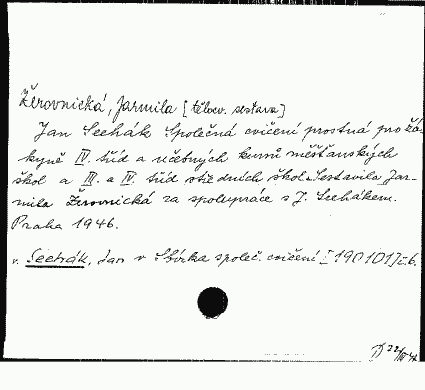 Žerovnická, Jarmila [tělocv. sestava]
Jan Sechák Společná cvičení prostná pro žá-
kyně IV. tříd a učebných kursů měšťanských
škol a III. a IV. tříd středních škol. Sestavila Jar-
mila Žerovnická za spolupráce s J. Sechákem.
Praha 1946.
v. Sechák, Jan v Sbírka společ. cvičení I 190101/č.6.